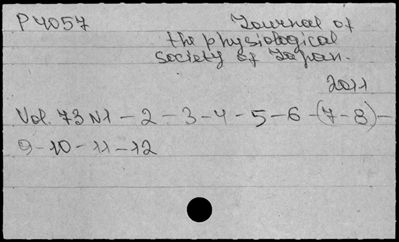 P4057 Journal of
the physiological
society of Japan.
2011
Vol. 73 N1 - 2 - 3 - 4 - 5 - 6 - (7 - 8) -
9 - 10 - 11 - 12